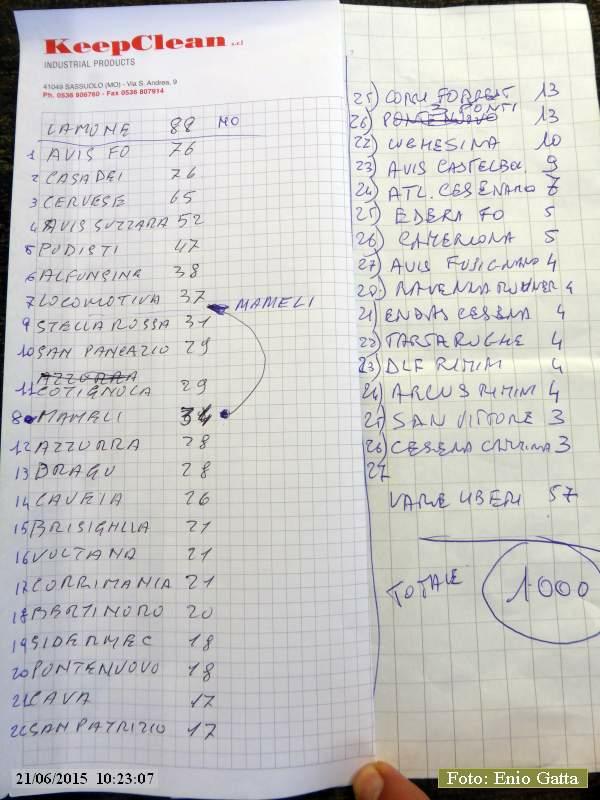 KeepClean s.r.l
INDUSTRIAL PRODUCTS
41049 SASSUOLO (MO) - Via S. Andrea, 9
Ph. 0536 806760 - Fax 0536 807914
LAMONE 88 MO
1 AVIS FO 76
2 CASADEI 76
3 CERVESE 65
4 AVIS SUZZARA 52
5 PODISTI 47
6 ALFONSINE 38
7 LOCOMOTIVA 37 MAMELI
9 STELLA ROSSA 31
10 SAN PANCRAZIO 29
AZZURRA
11 COTIGNOLA 29
8 MAMELI 34
12 AZZURRA 28
13 DRAGO 28
14 CAVEIA 26
15 BRISIGHLLA 21
16 VOLTANA 21
17 CORRIMANIA 21
18 BERTINORO 20
19 SIDERMEC 18
20 PONTENUOVO 18
21 CAVA 17
22 SAN PATRIZIO 17
25) CORRI FORREST 13
26) PONTENUOVO 3 PONTI 13
22) LUGHESINA 10
23) AVIS CASTELBOL 9
24) ATL. CESENATO
25) EDERA FO 5
26) CAVERIONA 5
27) AVIS FUSIGNANO 4
20) RAVENNA RUNNER 4
21) ENDAS CESENA 4
22) TARTARUGHE 4
23) DLF RIMINI 4
24) ARCUS RIMINI 4
25) SAN VITTORE 3
26) CESENA CAMMINA 3
27
VARIE LIBERI 57
TOTALE 1000
21/06/2015 10:23:07
Foto: Enio Gatta